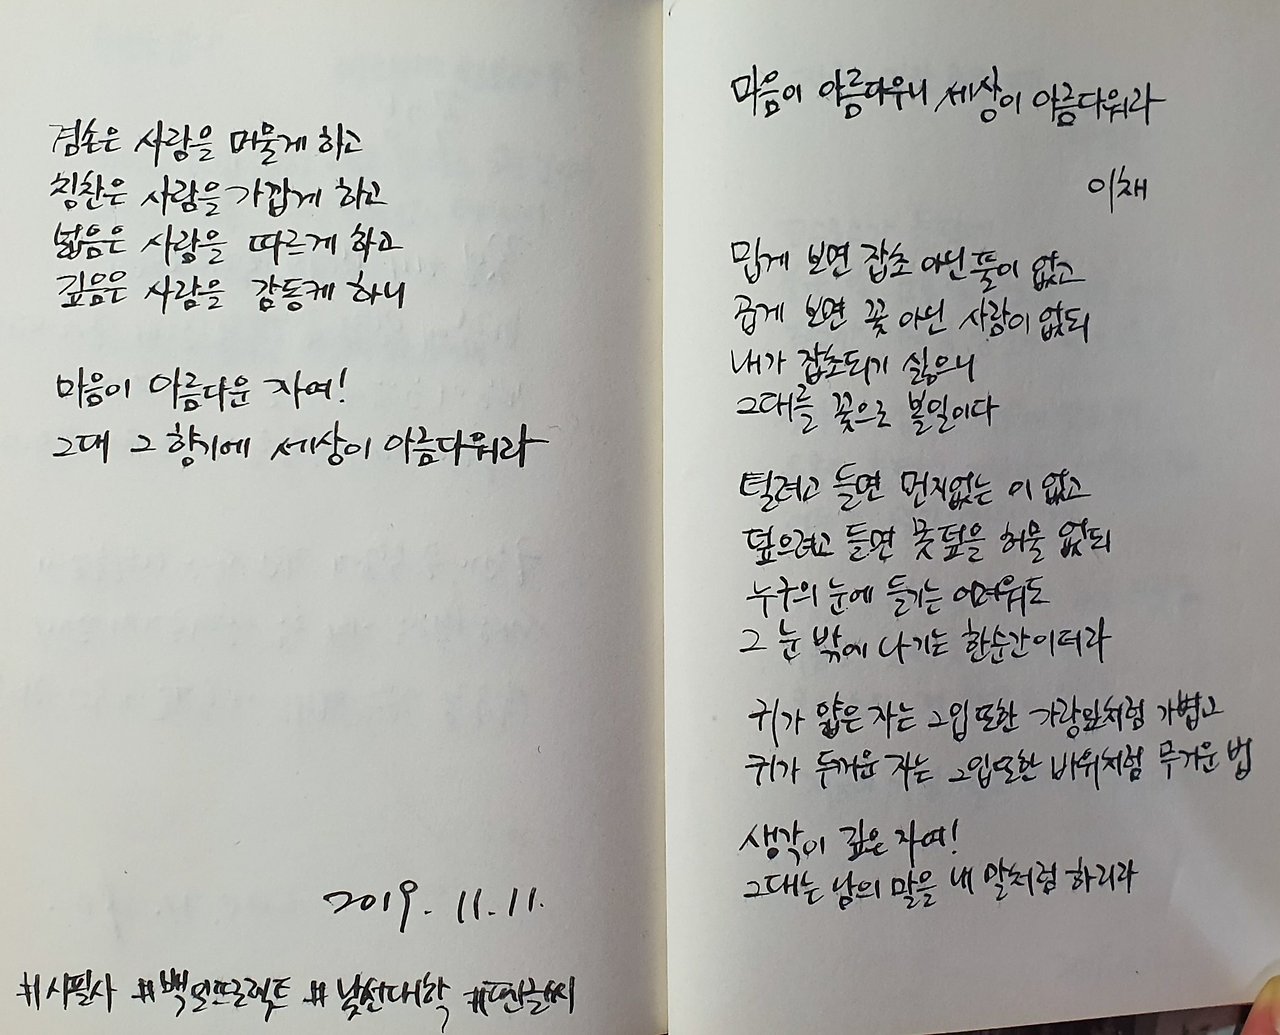 겸손은 사람을 머물게 하고
칭찬은 사람을 가깝게 하고
넓음은 사람을 따르게 하고
깊음은 사람을 감동케 하니
마음이 아름다운 자여!
그대 그 향기에 세상이 아름다워라
2019. 11. 11.
#시필사 #백일프로젝트 #낯선대학 #펜글씨
마음이 아름다우니 세상이 아름다워라
이채
밉게 보면 잡초 아닌 풀이 없고
곱게 보면 꽃 아닌 사람이 없되
내가 잡초되기 싫으니
그대를 꽃으로 볼일이다
털려고 들면 먼지없는 이 없고
덮으려고 들면 못덮을 허물 없되
누구의 눈에 들기는 어려워도
그 눈 밖에 나기는 한순간이더라
귀가 얇은 자는 그입 또한 가랑잎처럼 가볍고
귀가 두꺼운 자는 그입또한 바위처럼 무거운 법
생각이 깊은 자여!
그대는 남의 말을 내 말처럼 하리라